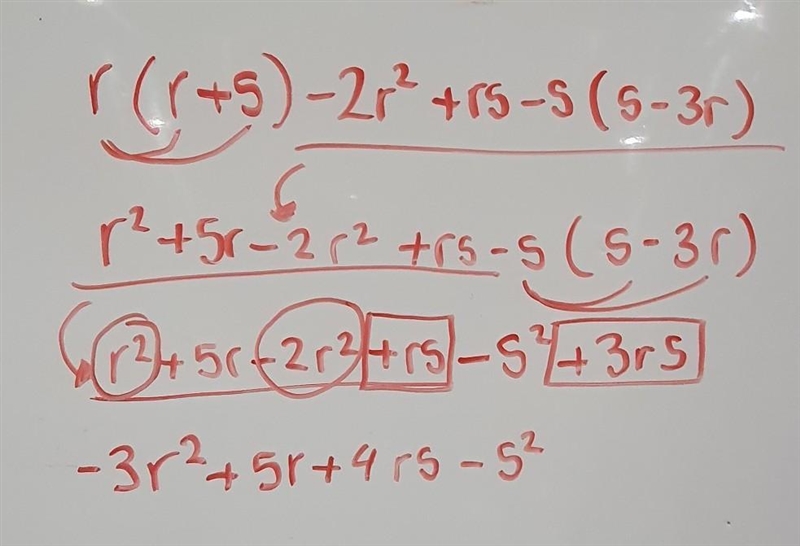 r(r+5)-2r²+rs-s(s-3r)
r²+5r-2r²+rs-s(s-3r)
r²+5r-2r²+rs-s²+3rs
-3r²+5r+4rs-s²